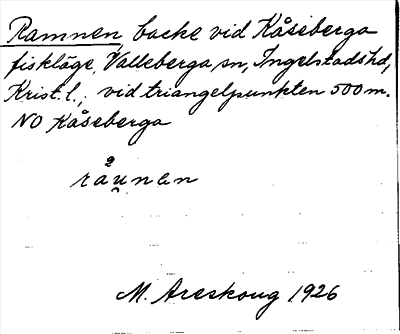 Ramnen, backe vid Kåseberga
fiskläge, Valleberga sn, Ingelstads hd,
Krist. l., vid triangelpunkten 500 m.
NO Kåseberga
M. Areskoug 1926